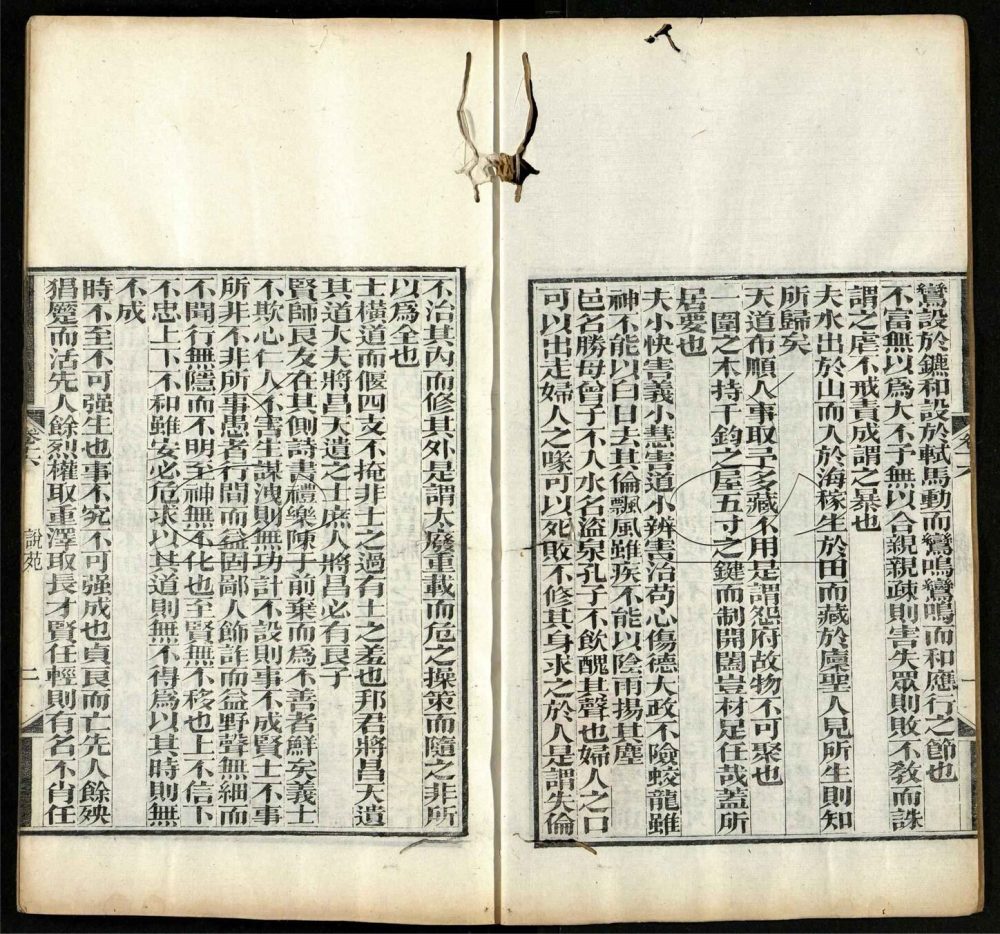 鸞設於鑣和設於軾馬動而鸞鳴鸞鳴而和應行之節也
不富無以為大不予無以合親親疎則害失眾則敗不教而誅
謂之虐不戒責成謂之暴也
夫水出於山而入於海稼生於田而藏於廩聖人見所生則知
所歸矣
天道布順人事取予多藏不用是謂怨府故物不可聚也
一圍之木持千鈞之屋五寸之鍵而制開闔豈材足任哉蓋所
居要也
夫小快害義小慧害道小辨害治苟心傷德大政不險蛟龍雖
神不能以白日去其倫飄風雖疾不能以陰雨揚其塵
邑名勝母曾子不入水名盜泉孔子不飲醜其聲也婦人之口
可以出走婦人之喙可以死敗不修其身求之於人是謂失倫
不治其內而修其外是謂大廢重載而危之操策而隨之非所
以爲全也
士橫道而偃四支不掩非士之過有土之羞也邦君將昌天遺
其道大夫將昌天遺之士庶人將昌必有良子
賢師良友在其側詩書禮樂陳于前棄而爲不善者鮮矣義士
不欺心仁人不害生謀洩則無功計不設則事不成賢士不事
所非不非所事愚者行間而益固鄙人飾詐而益野聲無細而
不聞行無隱而不明至神無不化也至賢無不移也上不信下
不忠上下不和雖安必危求以其道則無不得爲以其時則無
不成
時不至不可强生也事不究不可强成也貞良而亡先人餘殃
猖蹷而活先人餘烈權取重澤取長才賢任輕則有名不肖任
卷十六
說苑
二